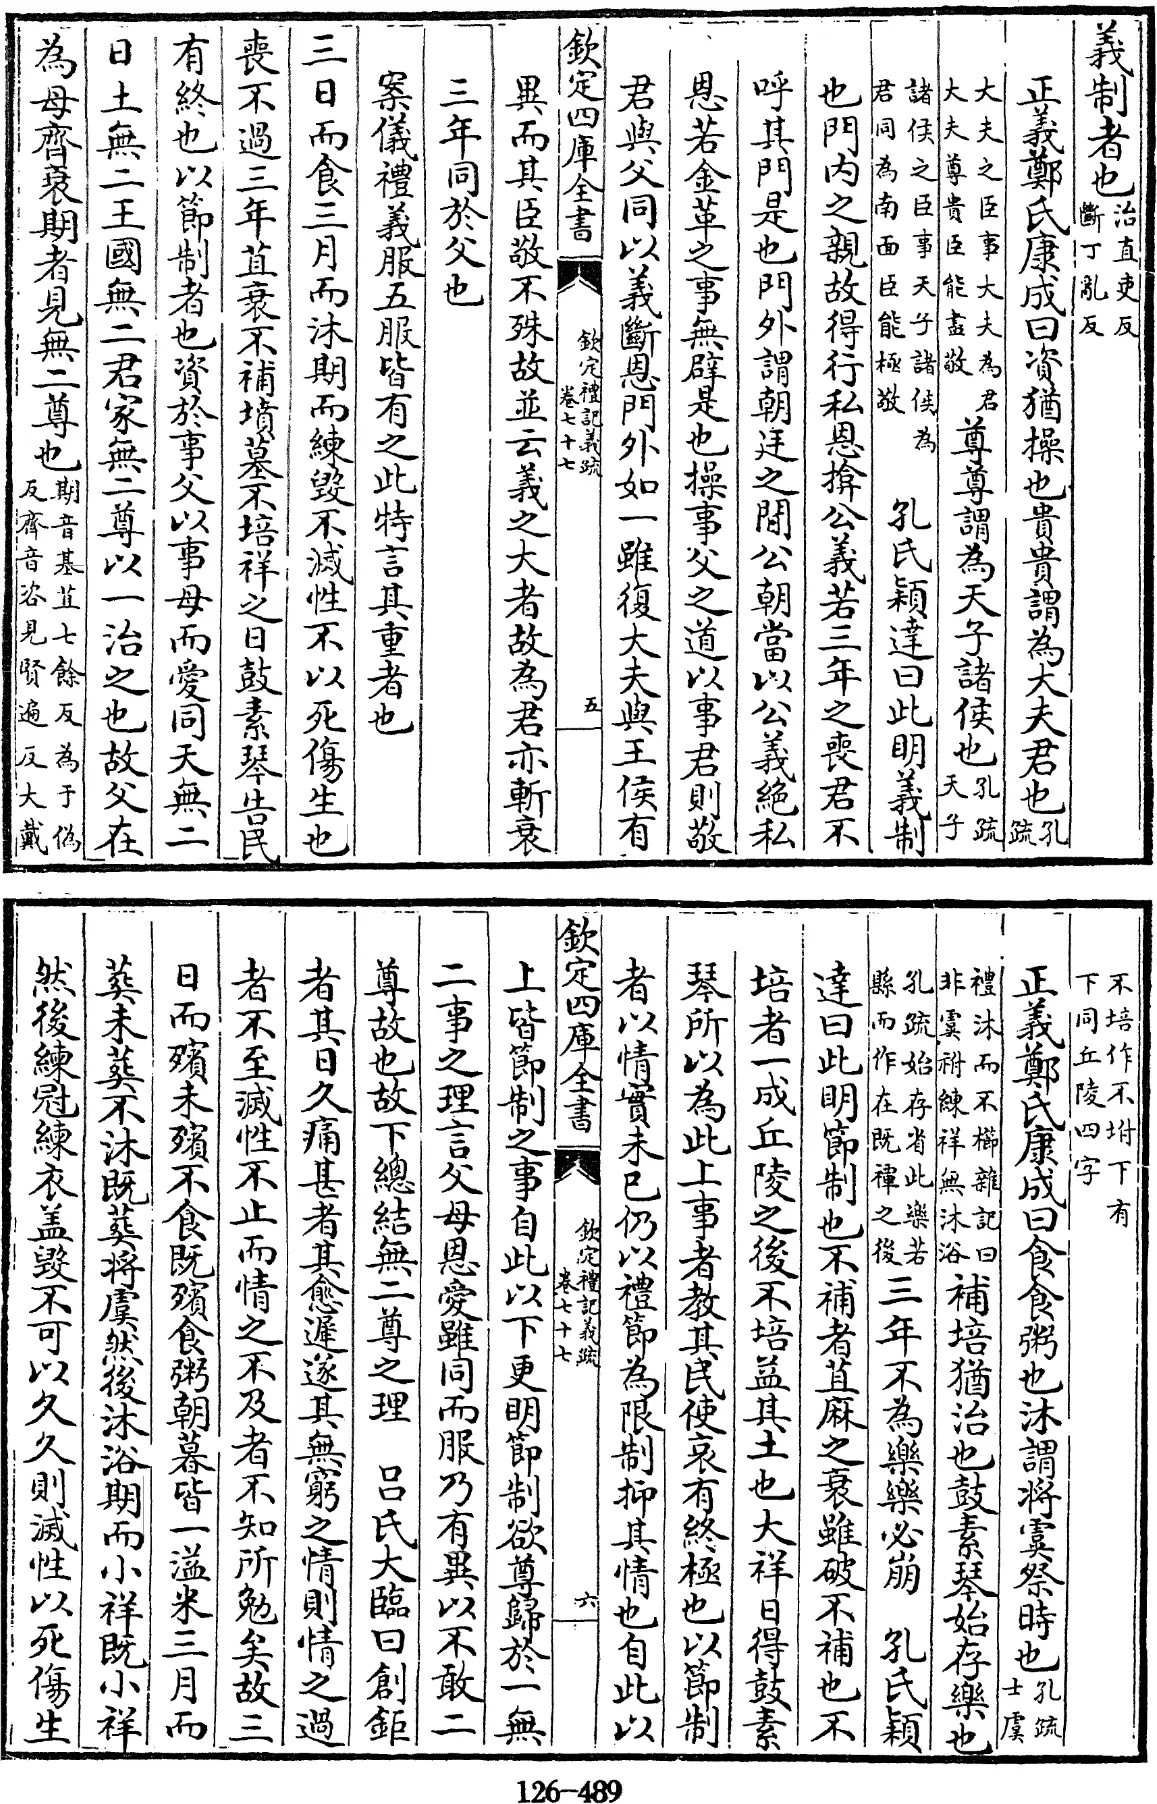 義制者也治直吏反斷丁亂反
正義鄭氏康成曰資猶操也貴貴謂為大夫君也孔疏
大夫之臣事大夫為君大夫尊貴臣能盡敬尊尊謂為天子諸侯也孔疏天子
諸侯之臣事天子諸侯為君同為南面臣能極敬 孔氏穎達曰此明義制
也門內之親故得行私恩揜公義若三年之喪君不
呼其門是也門外謂朝廷之間公朝當以公義絕私
恩若金革之事無辟是也操事父之道以事君則敬
君與父同以義斷恩門外如一雖復大夫與王侯有
欽定四庫全書 欽定禮記義疏 卷七十七 五
異而其臣敬不殊故並云義之大者故為君亦斬衰
三年同於父也
案儀禮義服五服皆有之此特言其重者也
三日而食三月而沐期而練毀不滅性不以死傷生也
喪不過三年苴衰不補墳墓不培祥之日鼓素琴告民
有終也以節制者也資於事父以事母而愛同天無二
日土無二王國無二君家無二尊以一治之也故父在
為母齊衰期者見無二尊也期音基苴七餘反為于偽反齊音咨見賢遍反大戴
不培作不坿下有下同丘陵四字
正義鄭氏康成曰食食粥也沐謂將虞祭時也孔疏士虞
禮沐而不櫛雜記曰非虞祔練祥無沐浴補培猶治也鼓素琴始存樂也
孔疏始存省此樂若縣而作在既禫之後三年不為樂樂必崩 孔氏穎
達曰此明節制也不補者苴麻之衰雖破不補也不
培者一成丘陵之後不培益其土也大祥日得鼓素
琴所以為此上事者教其民使哀有終極也以節制
者以情實未已仍以禮節為限制抑其情也自此以
欽定四庫全書 欽定禮記義疏 卷七十七 六
上皆節制之事自此以下更明節制欲尊歸於一無
二事之理言父母恩愛雖同而服乃有異以不敢二
尊故也故下總結無二尊之理 呂氏大臨曰創鉅
者其日久痛甚者其愈遲遂其無窮之情則情之過
者不至滅性不止而情之不及者不知所勉矣故三
日而殯未殯不食既殯食粥朝暮皆一溢米三月而
葬未葬不沐既葬將虞然後沐浴期而小祥既小祥
然後練冠練衣蓋毀不可以久久則滅性以死傷生
126-489